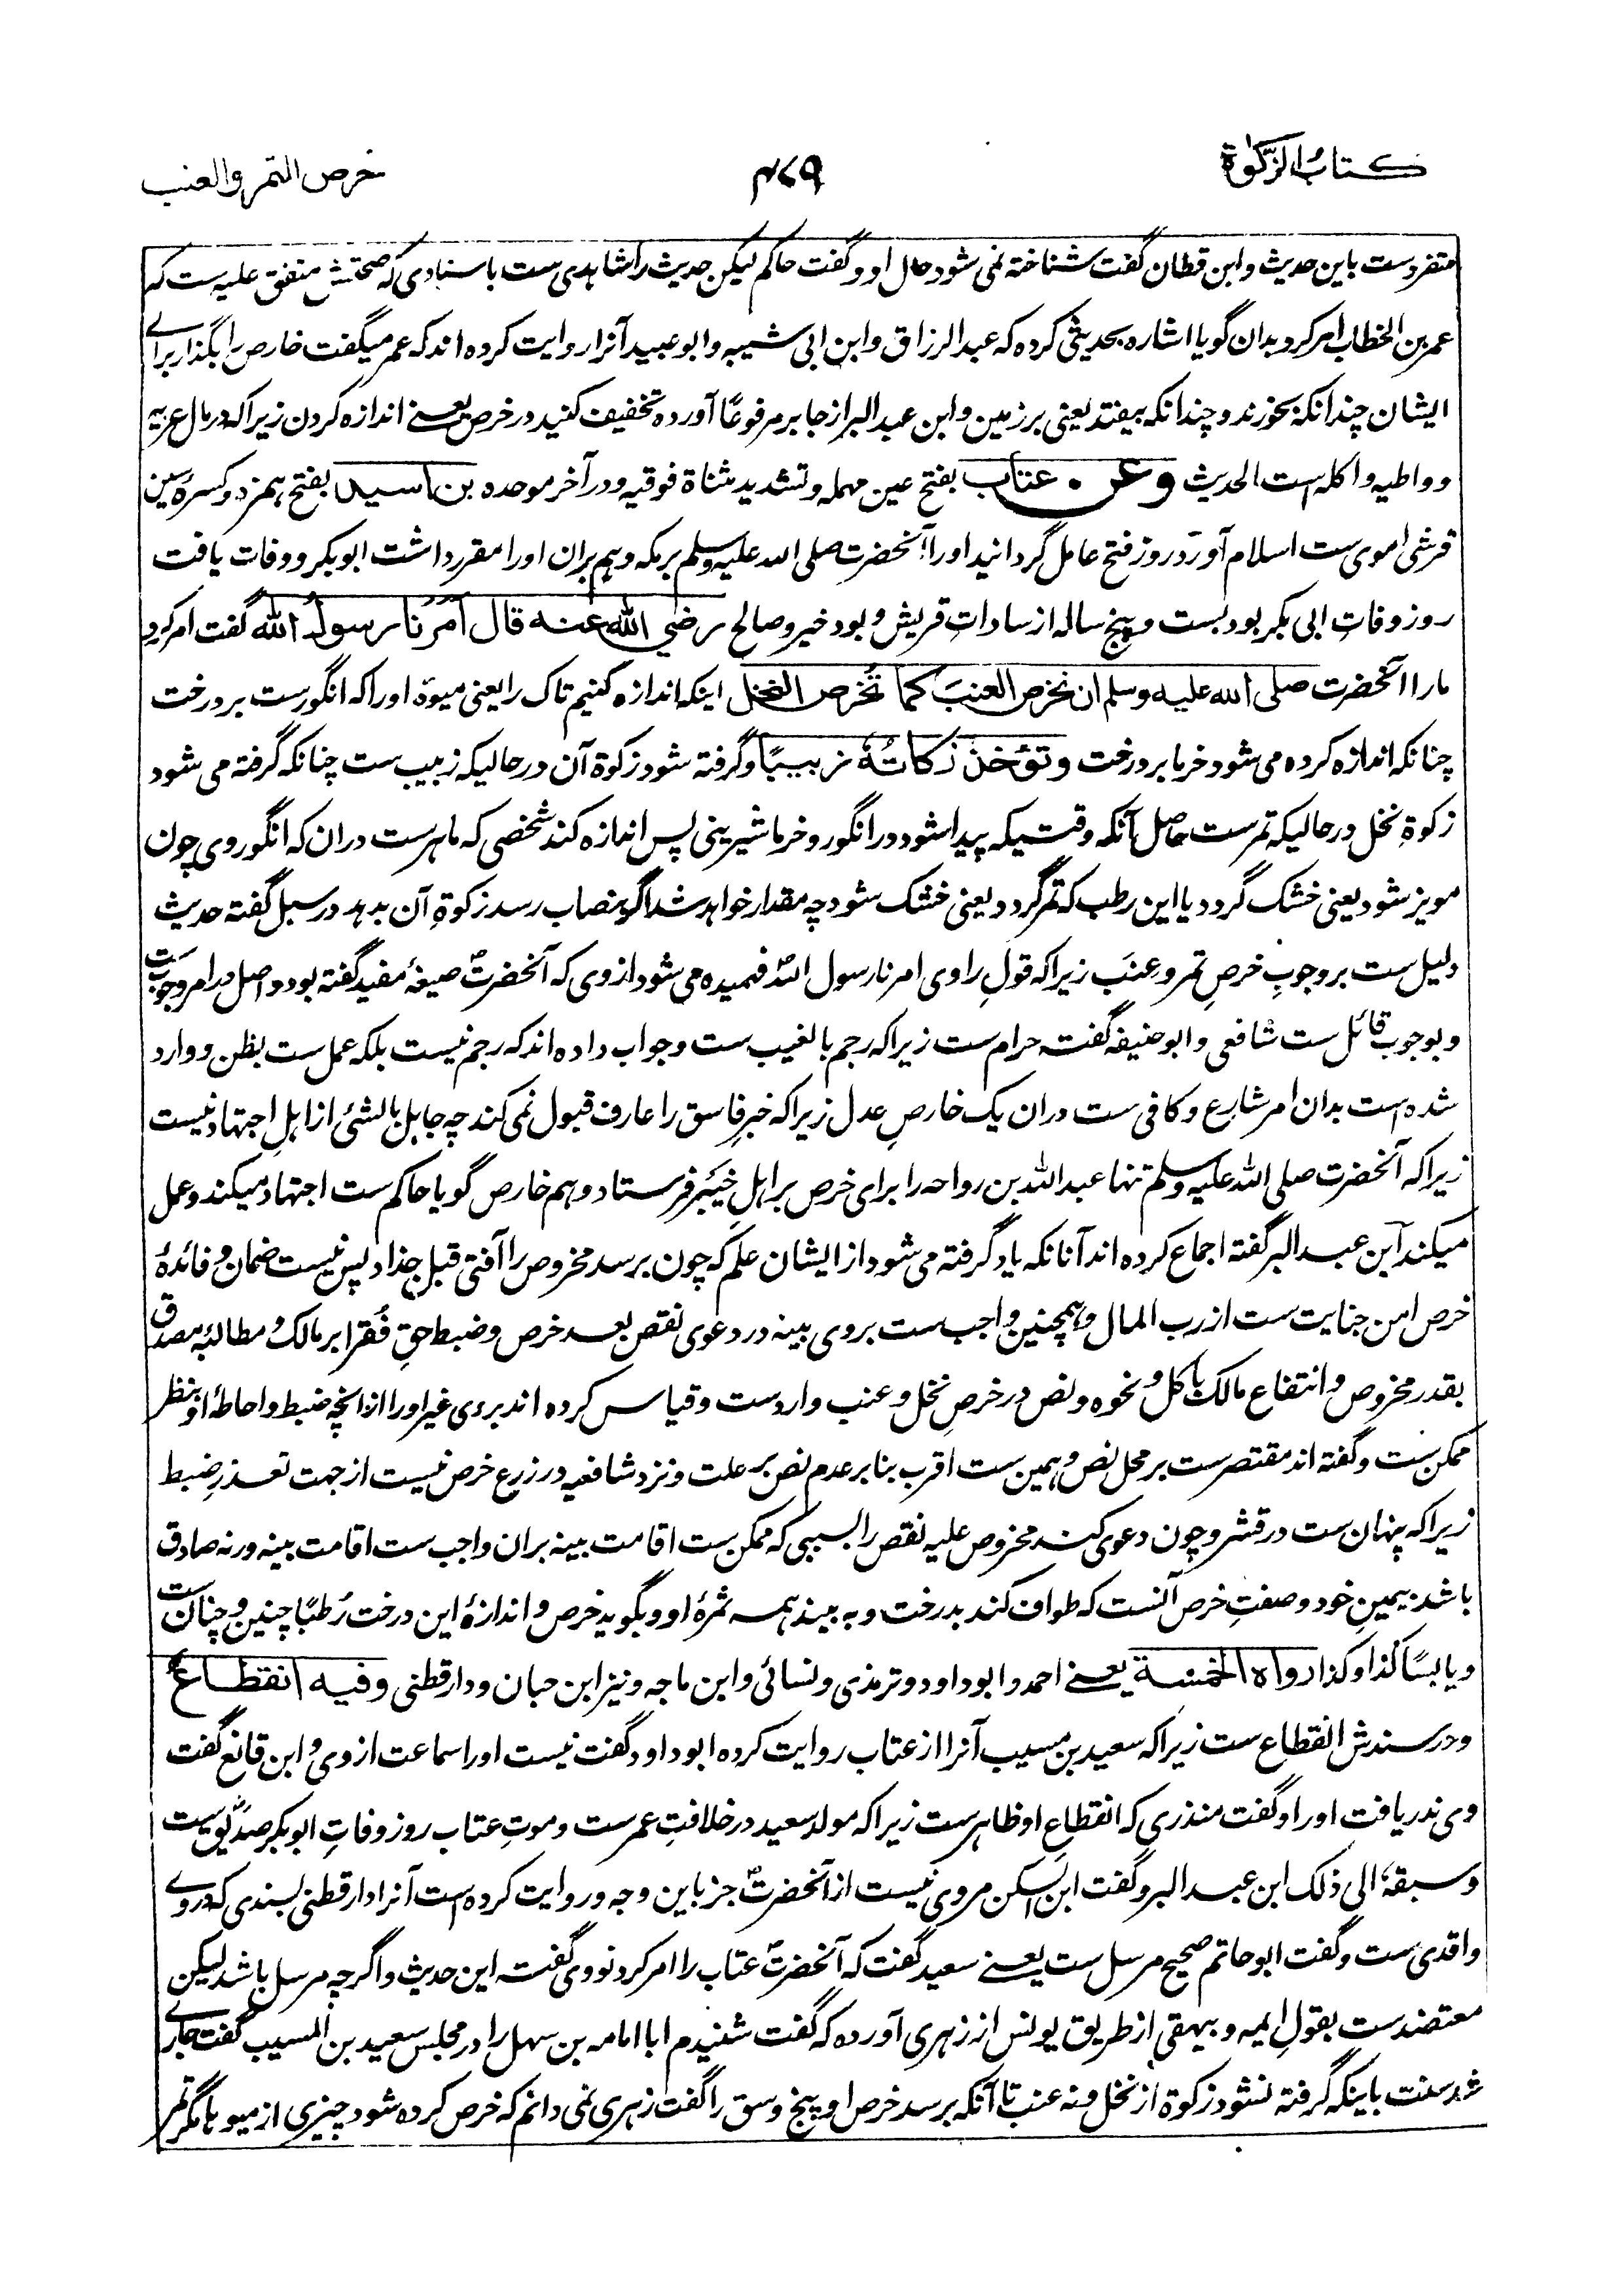 كتاب الزكوة
۴۷۹
خرص التمر والعنب
متفردست باین حدیث وابن قطان گفت شناخته نمی شود حال او وگفت حاکم لیکن حدیث را شاهدی ست باسنادی که صحتش متفق علیه ست که
عمر بن الخطاب امر کرد بدان گویا اشاره بحدیثی کرده که عبد الرزاق وابن ابی شیبه وابو عبید آنرا روایت کرده اند که عمر میگفت خارص را بگذار برای
ایشان چندانکه بخورند و چندانکه بیفتد یعنی بر زمین وابن عبد البر از جابر مرفوعًا آورده تخفیف کنید در خرص یعنی اندازه کردن زیرا که در مال عریه
و واطیه و اکله است الحدیث وعن عتاب بفتح عین مهمله وتشدید مثناة فوقیه ودر آخر موحده بن اسید بفتح همزه و کسرهٔ سین
قرشی اموی ست اسلام آورد روز فتح عامل گردانید او را آنحضرت صلی الله علیه وسلم بر مکه وهم بران او را مقرر داشت ابوبکر و وفات یافت
روز وفاتِ ابی بکر بود بست و پنج ساله از ساداتِ قریش و بود خیر و صالح رضي الله عنه قال اَمَرَنا رسولُ الله گفت امر کرد
مارا آنحضرت صلی الله علیه وسلم ان نخرص العنبَ کما تُخرص النخل اینکه اندازه کنیم تاک را یعنی میوهٔ او را که انگورست بر درخت
چنانکه اندازه کرده می شود خرما بر درخت وتؤخذ زکاتُهُ زبیبًا وگرفته شود زکوة آن در حالیکه زبیب ست چنانکه گرفته می شود
زکوة نخل در حالیکه تمرست حاصل آنکه وقتیکه پیدا شود در انگور و خرما شیرینی پس اندازه کند شخصی که ماهرست دران که انگور وی چون
مویز شود یعنی خشک گردد یا این رطب که تمر گردد یعنی خشک شود چه مقدار خواهد شد اگر بنصاب رسد زکوةِ آن بدهد در سبل گفته حدیث
دلیل ست بر وجوبِ خرصِ تمر و عنب زیرا که قولِ راوی امرنا رسول الله فهمیده می شود از وی که آنحضرتؐ صیغهٔ مفید گفته بود و اصل در امر وجوب ست
و بوجوب قائل ست شافعی وابوحنیفه گفته حرام ست زیرا که رجم بالغیب ست وجواب داده اند که رجم نیست بلکه عمل ست بظن و وارد
شده است بدان امر شارع و کافی ست دران یک خارصِ عدل زیرا که خبرِ فاسق را عارف قبول نمی کند چه جاهل بالشئ از اهلِ اجتهاد نیست
زیرا که آنحضرت صلی الله علیه وسلم تنها عبدالله بن رواحه را برای خرص بر اهلِ خیبر فرستاد وهم خارص گویا حاکم ست اجتهاد میکند و عمل
میکند ابن عبد البر گفته اجماع کرده اند آنانکه یاد گرفته می شود از ایشان علم که چون برسد مخروص را آفتی قبل جذاذ پس نیست ضمان وفائدهٔ
خرص امن جنایت ست از رب المال وهمچنین واجب ست بر وی بینه در دعوی نقص بعد خرص و ضبط حقِ فقرا بر مالک ومطالبهٔ مصدق
بقدر مخروص وانتفاع مالک باکل ونحوه ونص در خرصِ نخل و عنب واردست وقیاس کرده اند بر وی غیر او را ازانچه ضبط واحاطهٔ او بنظر
ممکن ست وگفته اند مقتصرست بر محل نص وهمین ست اقرب بنا بر عدم نص بر علت ونزد شافعیه در زرع خرص نیست از جهت تعذرِ ضبط
زیرا که پنهان ست در قشر وچون دعوی کند مخروص علیه نقص را بسببی که ممکن ست اقامت بینه بران واجب ست اقامت بینه ورنه صادق
باشد بیمینِ خود وصفتِ خرص آنست که طواف کند بدرخت وبه بیند همه ثمرهٔ او وبگوید خرص واندازهٔ این درخت رُطبًا چنین وچنان ست
ویابسًا کذا وکذا رواه الخمسة یعنی احمد و ابوداود و ترمذی و نسائی وابن ماجه و نیز ابن حبان ودارقطنی وفیه انقطاع
ودر سندش انقطاع ست زیرا که سعید بن مسیب آنرا از عتاب روایت کرده ابوداود گفت نیست او را سماعت از وی وابن قانع گفت
وی ندریافت او را وگفت منذری که انقطاعِ او ظاهرست زیرا که مولد سعید در خلافتِ عمرست وموتِ عتاب روز وفاتِ ابوبکر صدیق ست
وسبقهُ الی ذلک ابن عبد البر وگفت ابن السکن مروی نیست از آنحضرتؐ جز باین وجه وروایت کرده است آنرا دارقطنی بسندی که در وی
واقدی ست وگفت ابوحاتم صحیح مرسل ست یعنی سعید گفت که آنحضرتؐ عتاب را امر کرد نووی گفته این حدیث واگرچه مرسل باشد لیکن
معتضدست بقولِ ایمه وبیهقی از طریق یونس از زهری آورده که گفت شنیدم ابا امامه بن سهل را در مجلس سعید بن المسیب گفت جاری
شد سنت باینکه گرفته نشود زکوة از نخل ونه عنب تا آنکه برسد خرص او پنج وسق را گفت زهری نمی دانم که خرص کرده شود چیزی از میوه ها مگر تمر